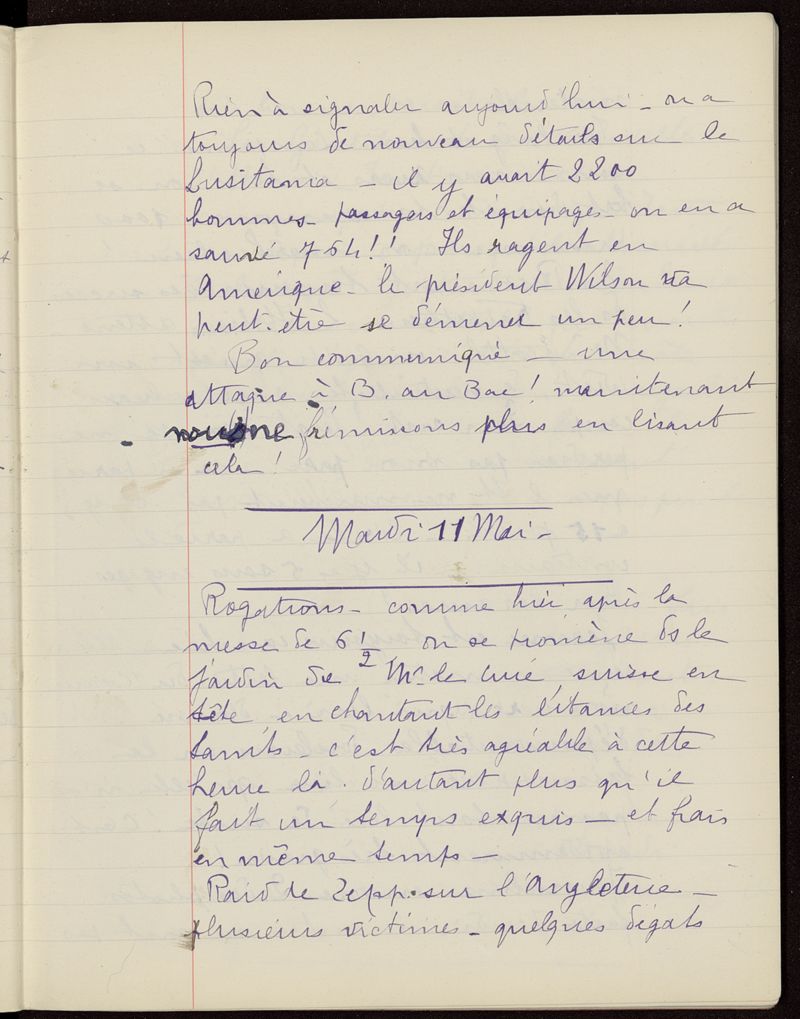 Rien à signaler aujourd'hui - on a
toujours de nouveau détails sur le
Lusitania - il y avait 2200
hommes - passagers et équipages - on en a
sauvé 764!! Ils ragent en
Amérique - le président Wilson va
peut-être se démener un peu!
Bon communiqué - une
attaque à B. au Bac! maintenant
nous ne frémissons plus en lisant
cela!
Mardi 11 Mai -
Rogations - comme hier après la
messe de 6 1/2 on se promène ds le
jardin de Mr le curé suisse en
tête en chantant les litanies des
Saints - c'est très agréable à cette
heure là. d'autant plus qu'il
fait un temps exquis - et frais
en même temps -
Raid de Zepp. sur l'Angleterre -
plusieurs victimes - quelques dégats